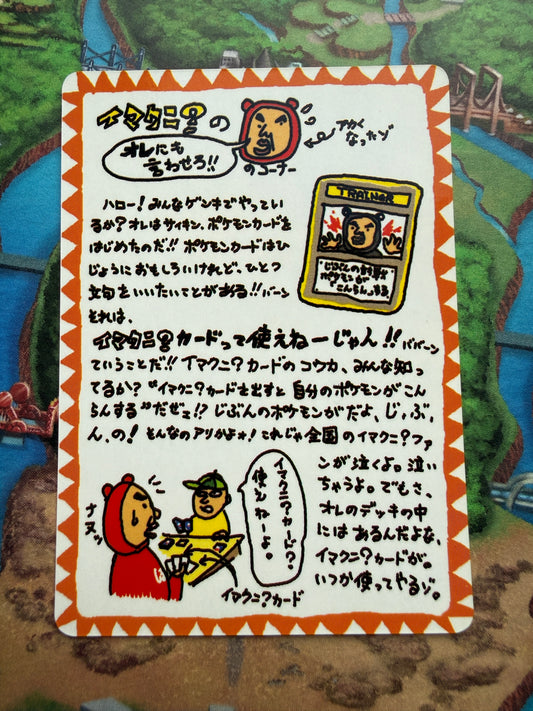 イマクニ?の
オレにも
言わせろ!!
のコーナー
アカく
なったゾ
ハロー!みんなゲンキでやってい
るか?オレはサイキン、ポケモンカードを
はじめたのだ!!ポケモンカードはひ
じょうにおもしろいけれど、ひとつ
文句をいいたいことがある!!バーン
それは、
TRAINER
じぶんの
ポケモンが
こんらんする
イマクニ?カードって使えねーじゃん!!ババーン
ていうことだ!!イマクニ?カードのコウカ、みんな知っ
てるか?"イマクニ?カードを出すと自分のポケモンがこん
らんする"だぜェ!?じぶんのポケモンがだよ、じ、ぶ、
ん、の!そんなのアリかよォ!これじゃ全国のイマクニ?ファ
ンが泣くよ。泣い
ちゃうよ。でもさ、
オレのデッキの中
にはあるんだよな、
イマクニ?カードが。
いつか使ってやるゾ。
イマクニ?カード?
使えねーよ。
ナヌッ
イマクニ?カード